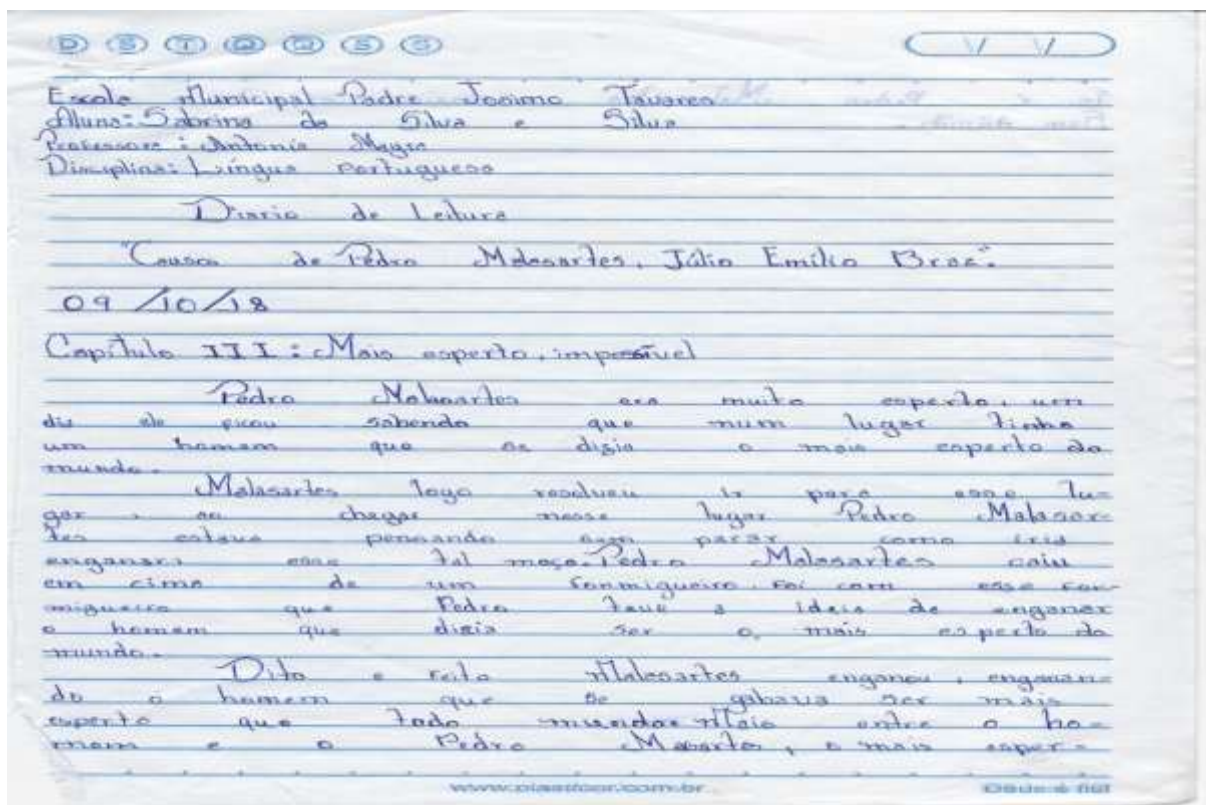 D S T Q Q S S
Escola Municipal Padre Josimo Tavares
Aluna: Sabrina da Silva e Silva
Professora: Antonia
Disciplina: Língua Portuguesa
Diario de Leitura
"Causos de Pedro Malasartes, Júlio Emílio Braz".
09/10/18
Capítulo III: Mais esperto, impossível
Pedro Malasartes era muito esperto, um
dia ele ficou sabendo que num lugar tinha
um homem que se dizia o mais esperto do
mundo.
Malasartes logo resolveu ir para esse lu-
gar, ao chegar nesse lugar Pedro Malasar-
tes estava pensando sem parar como iria
enganar esse tal moço. Pedro Malasartes caiu
em cima de um formigueiro. Foi com esse for-
migueiro que Pedro teve a ideia de enganar
o homem que dizia ser o mais esperto do
mundo.
Dito e feito Malasartes enganou, enganan-
do o homem que se gabava ser mais
esperto que todo mundo. Mais entre o ho-
mem e o Pedro Masartes, o mais esper-
www.plastcor.com.br